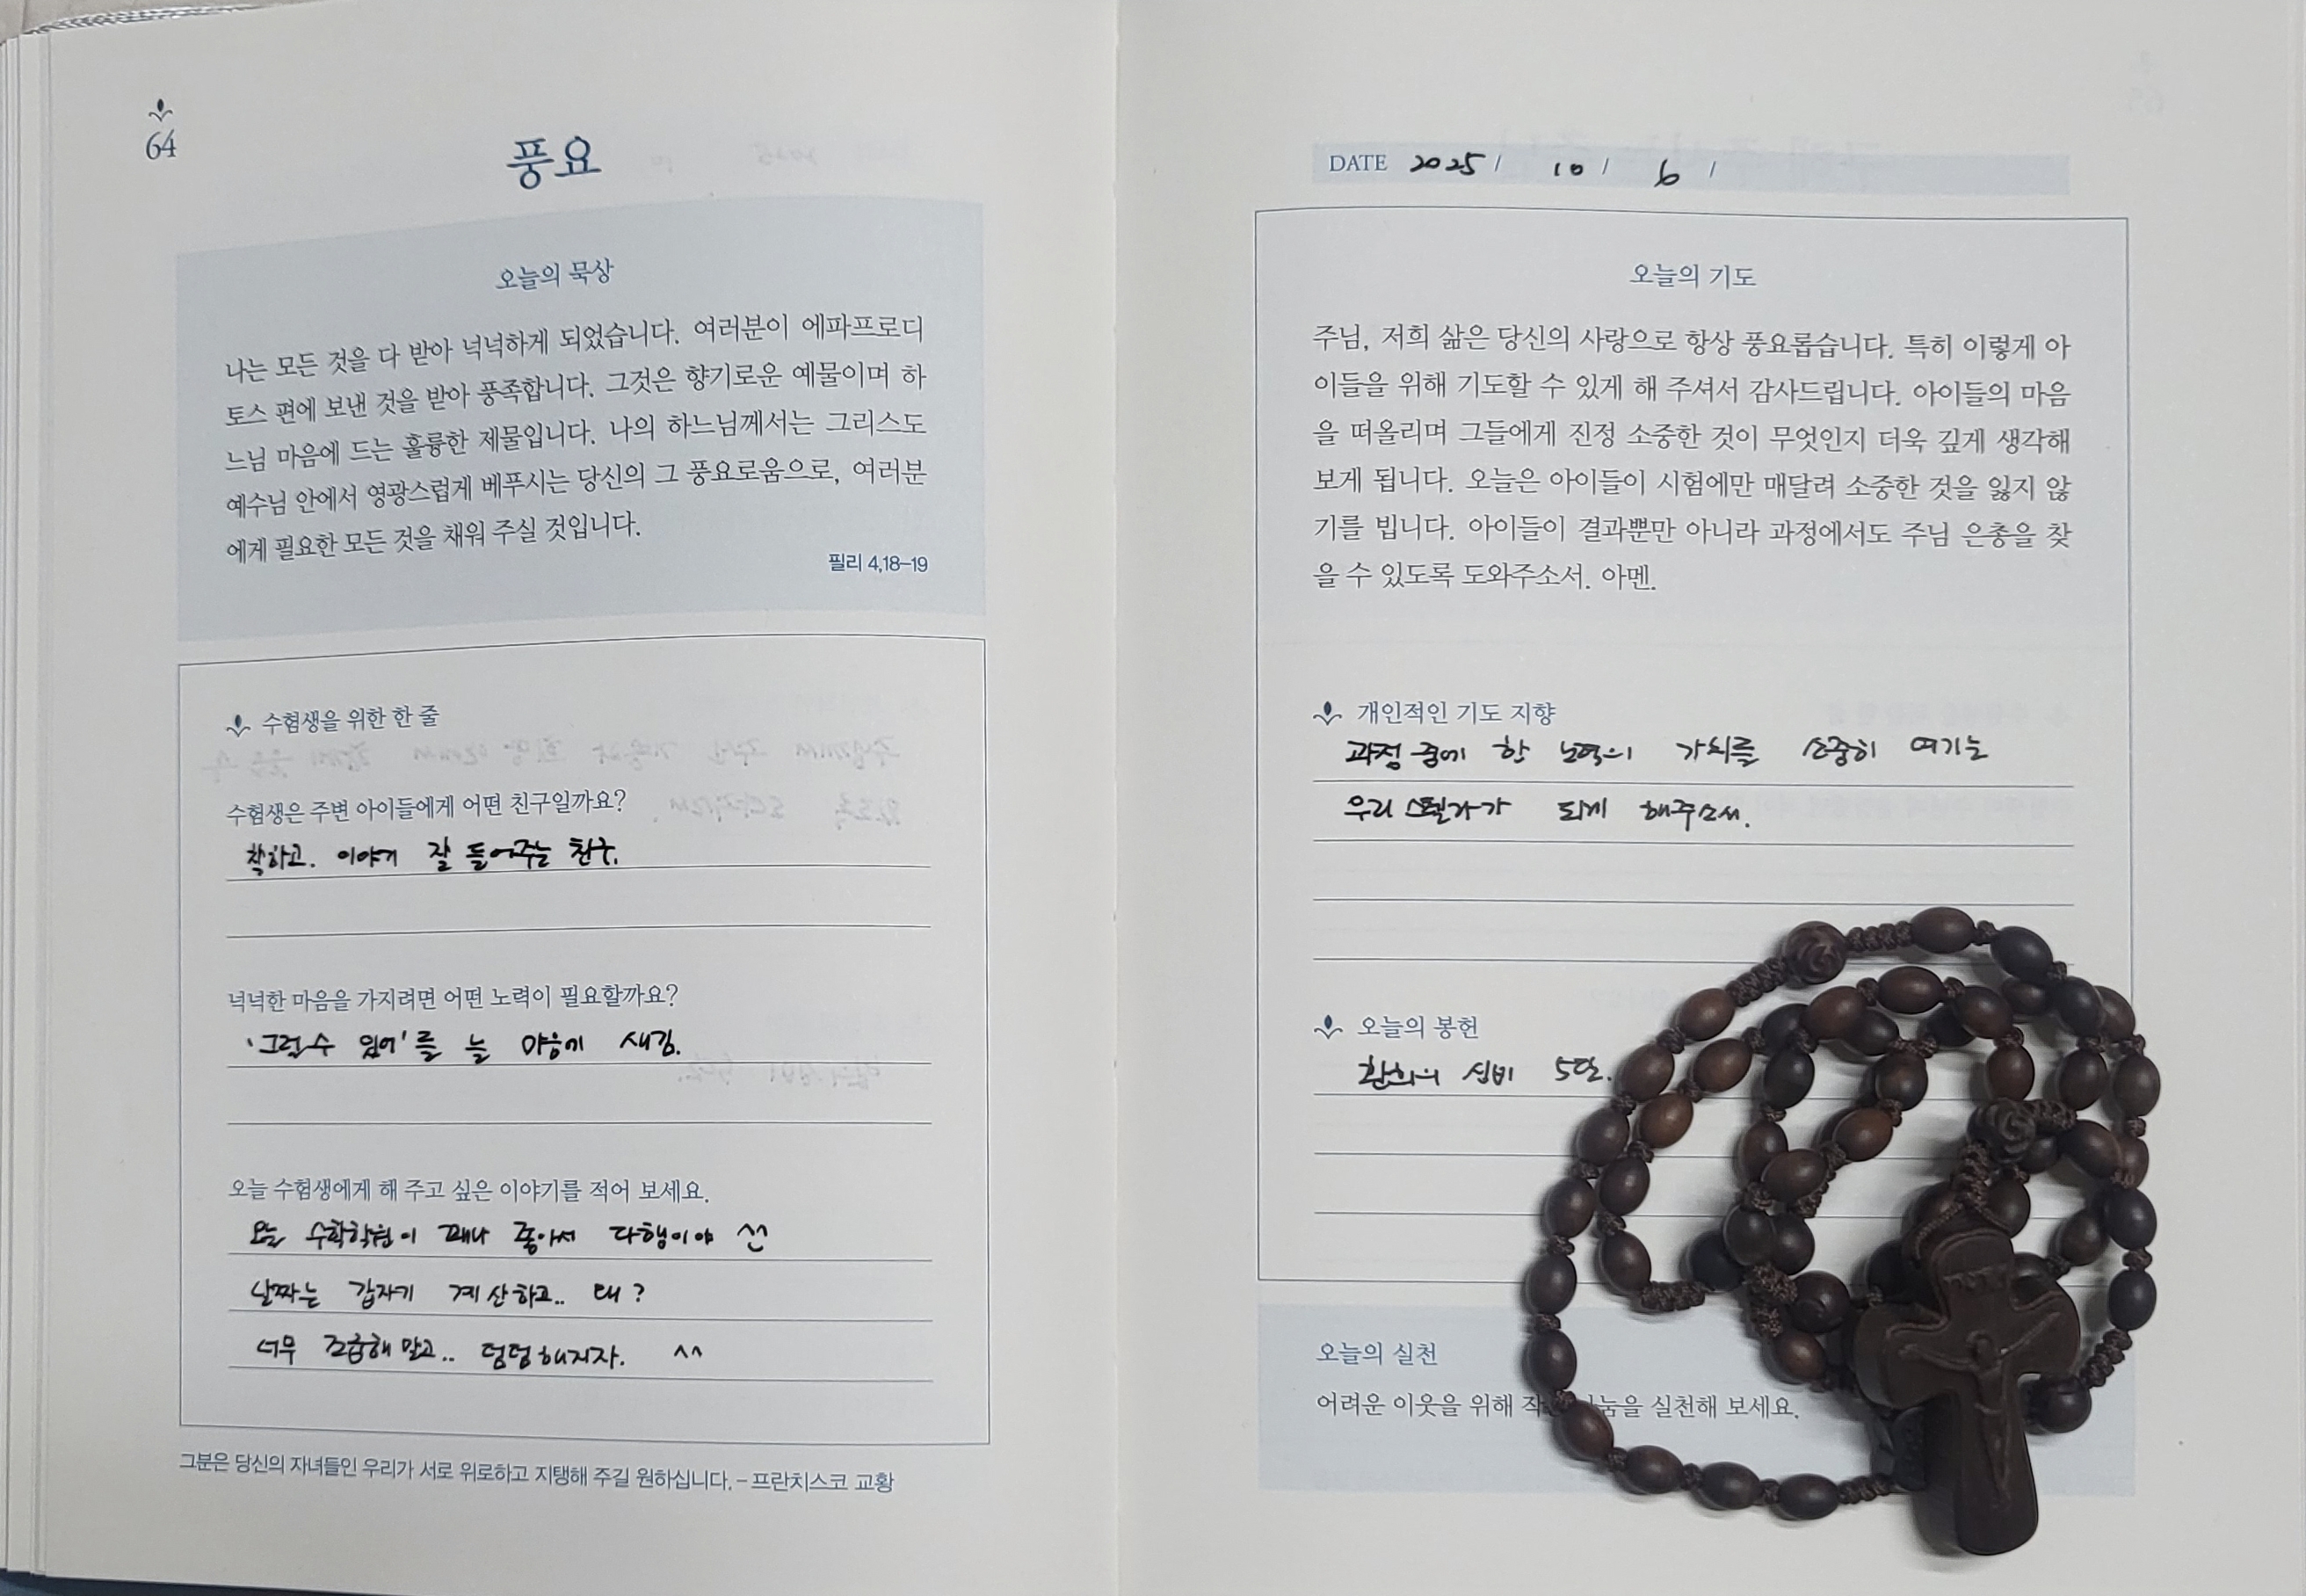 64
풍요
오늘의 묵상
나는 모든 것을 다 받아 넉넉하게 되었습니다. 여러분이 에파프로디
토스 편에 보낸 것을 받아 풍족합니다. 그것은 향기로운 예물이며 하
느님 마음에 드는 훌륭한 제물입니다. 나의 하느님께서는 그리스도
예수님 안에서 영광스럽게 베푸시는 당신의 그 풍요로움으로, 여러분
에게 필요한 모든 것을 채워 주실 것입니다.
필리 4,18-19
수험생을 위한 한 줄
수험생은 주변 아이들에게 어떤 친구일까요?
착하고. 이야기 잘 들어주는 친구.
넉넉한 마음을 가지려면 어떤 노력이 필요할까요?
'그럴수 있어'를 늘 마음에 새김.
오늘 수험생에게 해 주고 싶은 이야기를 적어 보세요.
오늘 수학학원이 꽤나 좋아서 다행이야 ^^
날짜는 갑자기 계산하고.. 왜?
너무 조급해 말고.. 덤덤해지자. ^^
그분은 당신의 자녀들인 우리가 서로 위로하고 지탱해 주길 원하십니다. - 프란치스코 교황
DATE 2025 / 10 / 6 /
오늘의 기도
주님, 저희 삶은 당신의 사랑으로 항상 풍요롭습니다. 특히 이렇게 아
이들을 위해 기도할 수 있게 해 주셔서 감사드립니다. 아이들의 마음
을 떠올리며 그들에게 진정 소중한 것이 무엇인지 더욱 깊게 생각해
보게 됩니다. 오늘은 아이들이 시험에만 매달려 소중한 것을 잃지 않
기를 빕니다. 아이들이 결과뿐만 아니라 과정에서도 주님 은총을 찾
을 수 있도록 도와주소서. 아멘.
개인적인 기도 지향
과정 중에 한 노력의 가치를 소중히 여기는
우리 스텔라가 되게 해주소서.
오늘의 봉헌
환희의 신비 5단.
오늘의 실천
어려운 이웃을 위해 작은 나눔을 실천해 보세요.